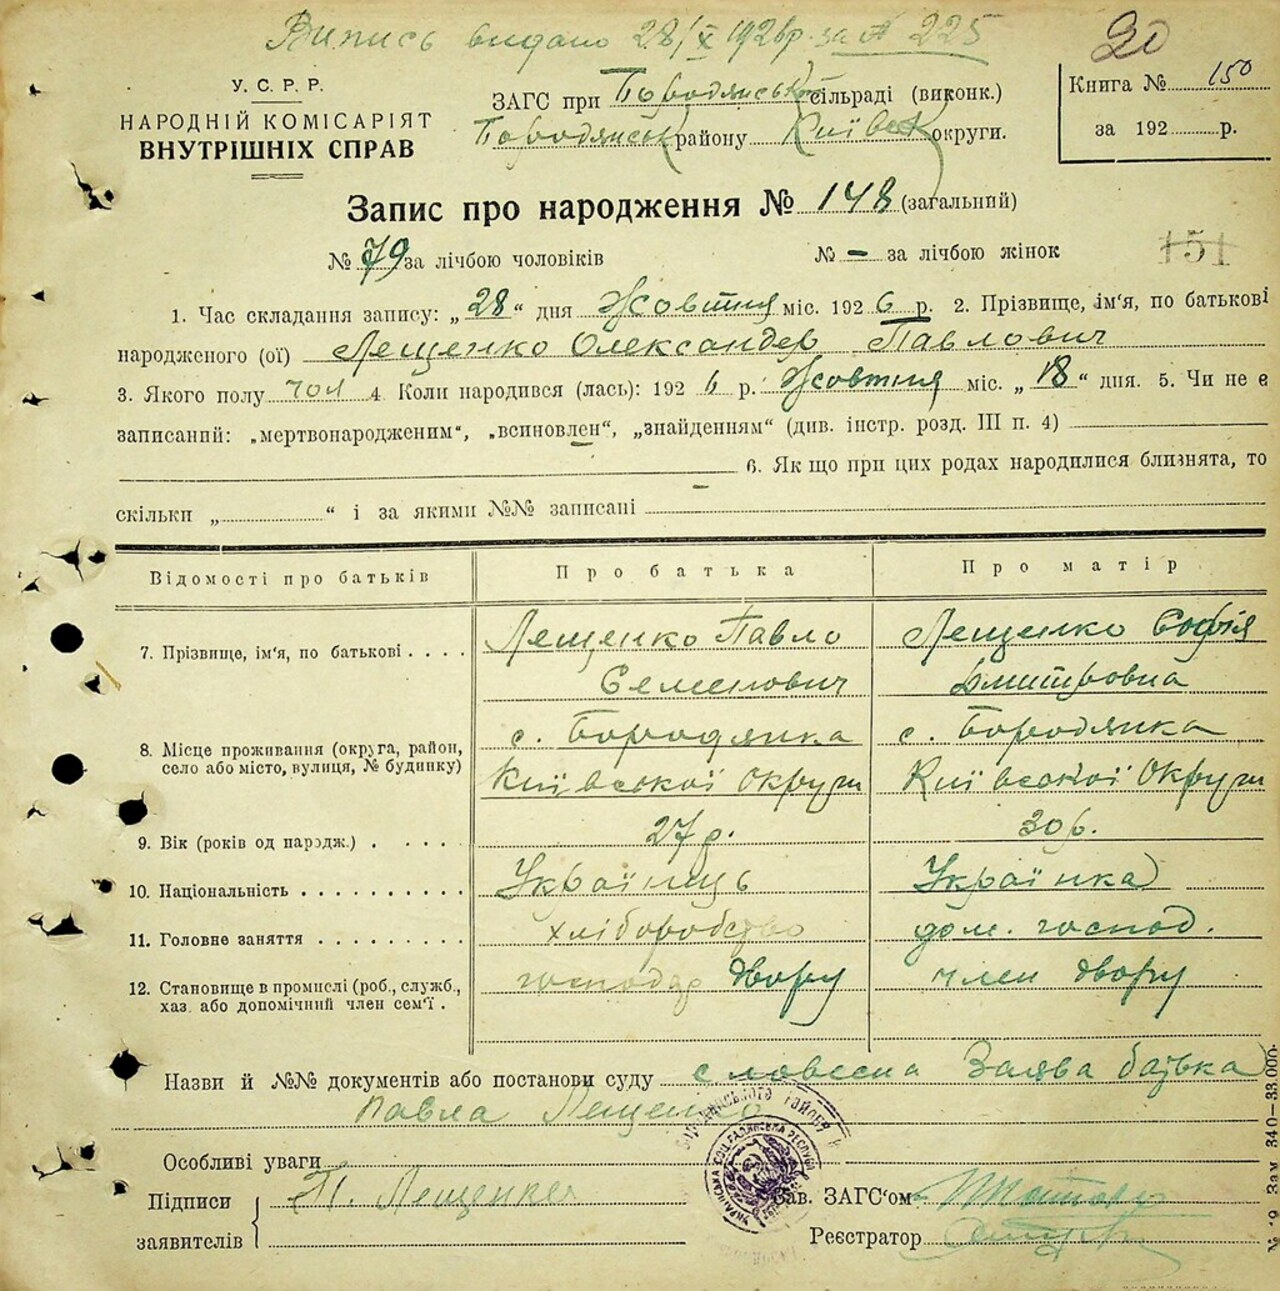 Випись видано 28/X 1926р. за № 225
20
У. С. Р. Р.
НАРОДНІЙ КОМІСАРІЯТ
ВНУТРІШНІХ СПРАВ
ЗАГС при Бородянськ сільраді (виконк.)
Бородянськ району Київськ округи.
Книга № 150
за 192 р.
Запис про народження № 148 (загальний)
№ 79 за лічбою чоловіків № — за лічбою жінок
151
1. Час складання запису: „28“ дня Жовтня міс. 1926 р. 2. Прізвище, ім'я, по батькові
народженого (ої) Лещенко Олександер Павлович
3. Якого полу чол 4. Коли народився (лась): 1926 р. Жовтня міс. „18“ дня. 5. Чи не є
записаний: „мертвонародженим“, „всиновлен“, „знайденням“ (див. інстр. розд. III п. 4)
6. Як що при цих родах народилися близнята, то
скільки „ “ і за якими №№ записані —
Відомості про батьків Про батька Про матір
7. Прізвище, ім'я, по батькові . . . . Лещенко Павло Лещенко Софія
Семенович Дмитровна
8. Місце проживання (округа, район, с. Бородянка с. Бородянка
село або місто, вулиця, № будинку) Київської Округи Київської Округи
9. Вік (років од народж.) . . . . 27 р. 30 р.
10. Національність . . . . . . . . . . Українець Українка
11. Головне заняття . . . . . . . . . хліборобство дом. господ.
12. Становище в промислі (роб., служб., господар двору член двору
хаз. або допомічний член сем'ї .
Назви й №№ документів або постанови суду словесна Заява батька
Павла Лещенко
Особливі уваги
Підписи П. Лещенко Зав. ЗАГС'ом
заявителів Реєстратор
№ 19 Зам. 340—33.000.